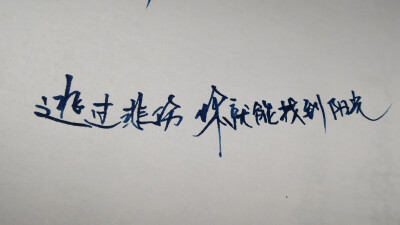 透过悲伤 你就能找到阳光